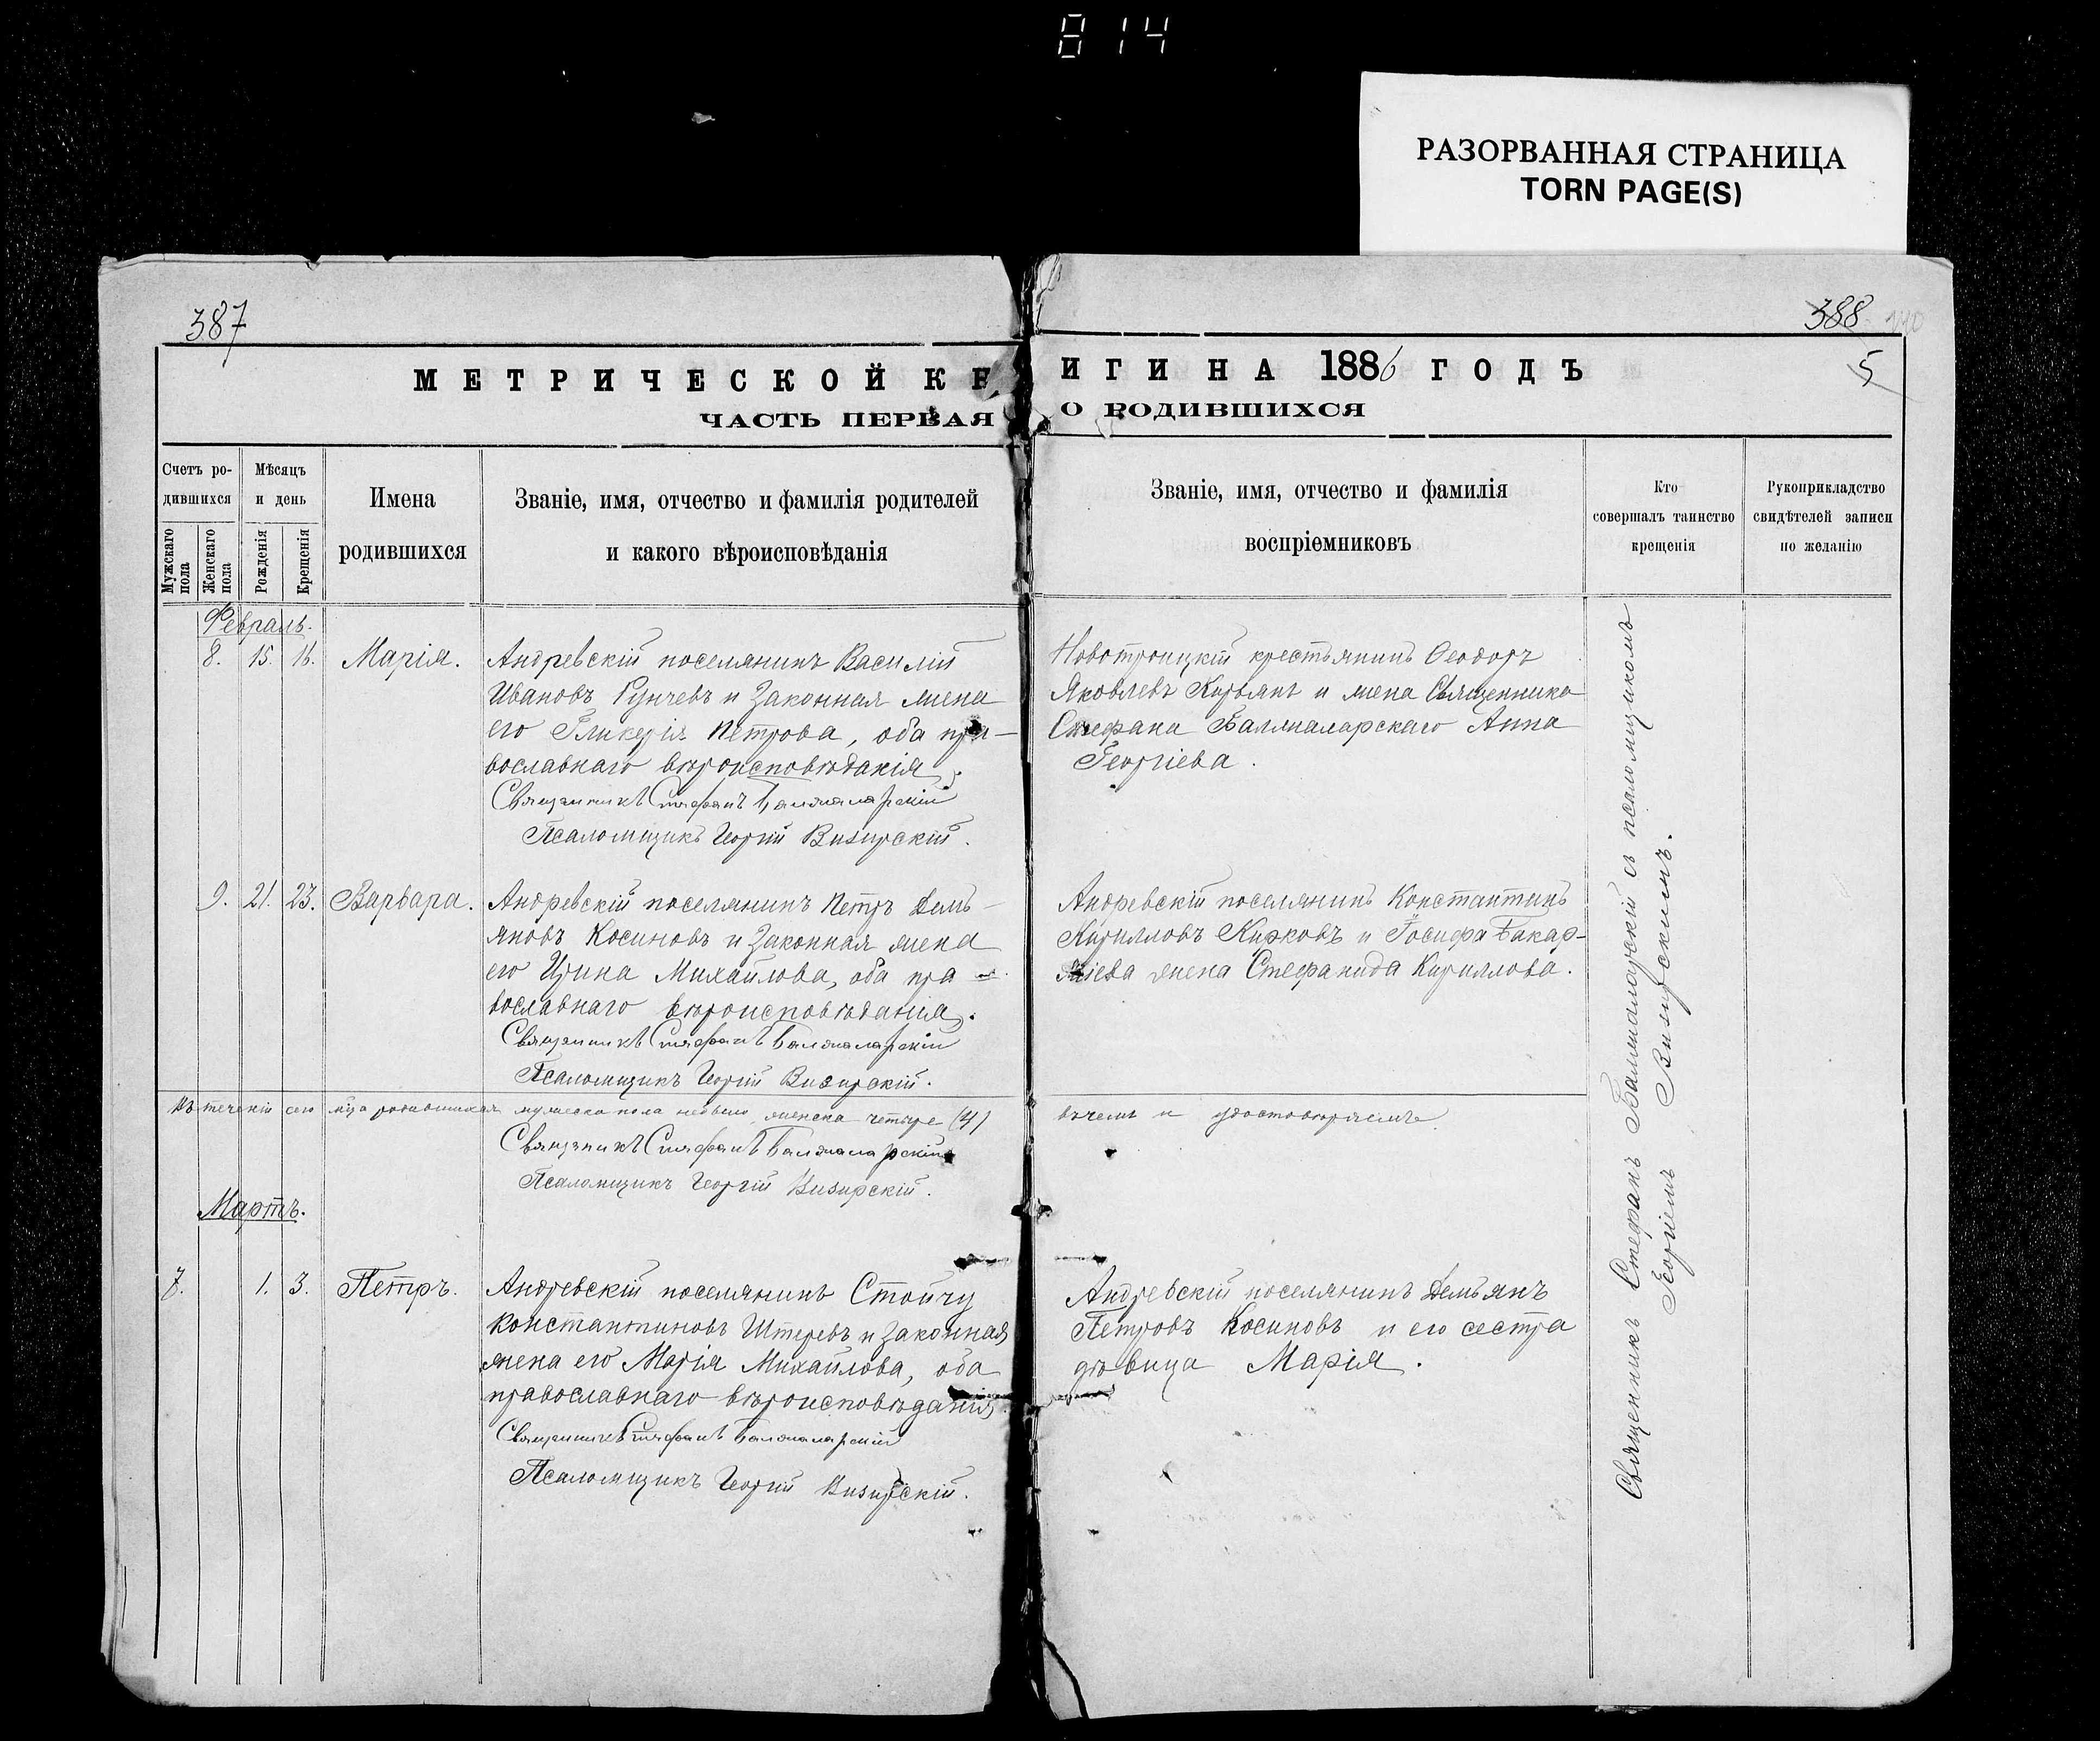 814
РАЗОРВАННАЯ СТРАНИЦА
TORN PAGE(S)
387
388
5
МЕТРИЧЕСКОЙ КН
ИГИ НА 1886 ГОДЪ
ЧАСТЬ ПЕРВАЯ
О РОДИВШИХСЯ
Счетъ ро-
дившихся
Мужскаго
пола
Женскаго
пола
Мѣсяцъ
и день
Рожденія
Крещенія
Имена
родившихся
Званіе, имя, отчество и фамилія родителей
и какого вѣроисповѣданія
Званіе, имя, отчество и фамилія
воспріемниковъ
Кто
совершалъ таинство
крещенія
Рукоприкладство
свидѣтелей записи
по желанію
Февраль.
8. 15. 16. Марія.
Андревскій поселянинъ Василій
Ивановъ Гунчевъ и Законная жена
его Гликерія Петрова, оба пра-
вославнаго вѣроисповѣданія.
Священникъ Стефанъ Балжаларскій
Псаломщикъ Георгій Визирскій.
Новотроицкій крестьянинъ Ѳеодоръ
Яковлевъ и жена Священника
Стефана Балжаларскаго Анна
Георгіева.
9. 21. 23. Варвара.
Андревскій поселянинъ Петръ Демь-
яновъ Косиновъ и Законная жена
его Ирина Михайлова, оба пра-
вославнаго вѣроисповѣданія.
Священникъ Стефанъ Балжаларскій
Псаломщикъ Георгій Визирскій.
Андревскій поселянинъ Константинъ
Кирилловъ Кирковъ и Іосифа
жена Стефанида Кириллова.
Въ теченіи сего м-ца родившихся мужеска пола небыло, женска четыре (4)
въ чемъ и удостовѣряемъ.
Священникъ Стефанъ Балжаларскій
Псаломщикъ Георгій Визирскій.
Мартъ.
7. 1. 3. Петръ.
Андревскій поселянинъ Стойчу
Константиновъ Штеревъ и Законная
жена его Марія Михайлова, оба
православнаго вѣроисповѣданія.
Священникъ Стефанъ Балжаларскій
Псаломщикъ Георгій Визирскій.
Андревскій поселянинъ Демьянъ
Петровъ Косиновъ и его сестра
дѣвица Марія.
Священникъ Стефанъ Балжаларскій съ псаломщикомъ
Георгіемъ Визирскимъ.